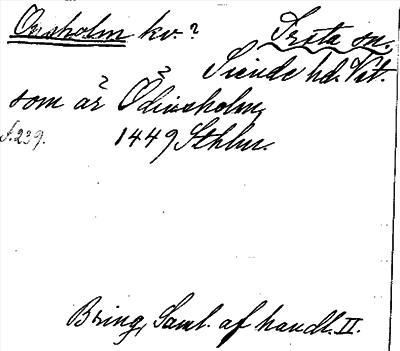 Onsholm kv.? Irsta sn.
Siende hd. Vst.
som är Odinsholm
? ?
s. 239. 1449 Sthlm.
Bring, Saml. af handl. II.